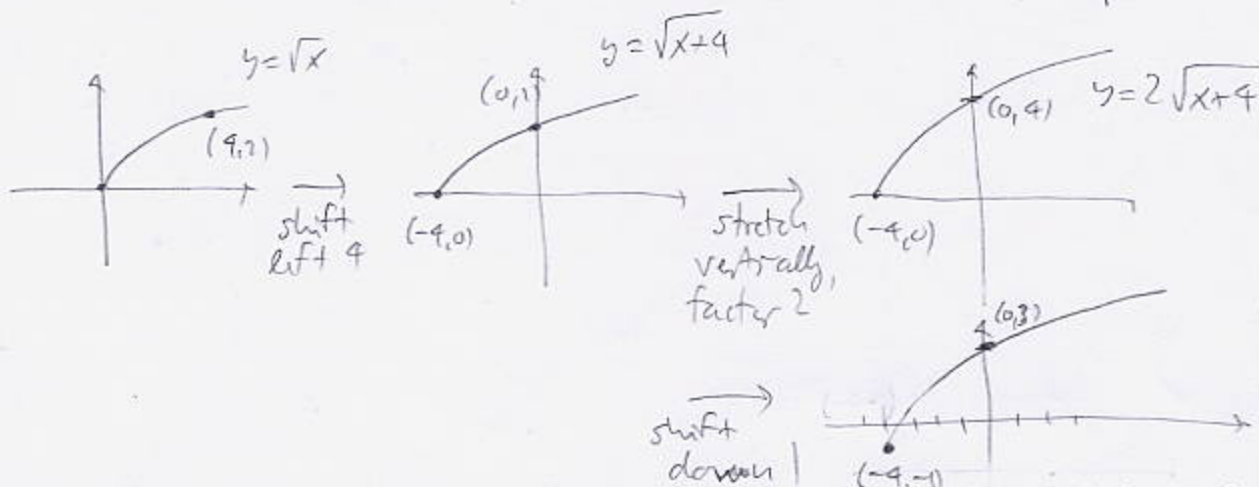 y = √x
(4,2)
shift
left 4
y = √x+4
(-4,0)
stretch
vertically,
factor 2
y = 2√x+4
(0,4)
(-4,0)
shift
down 1
(0,3)
(-4,-1)